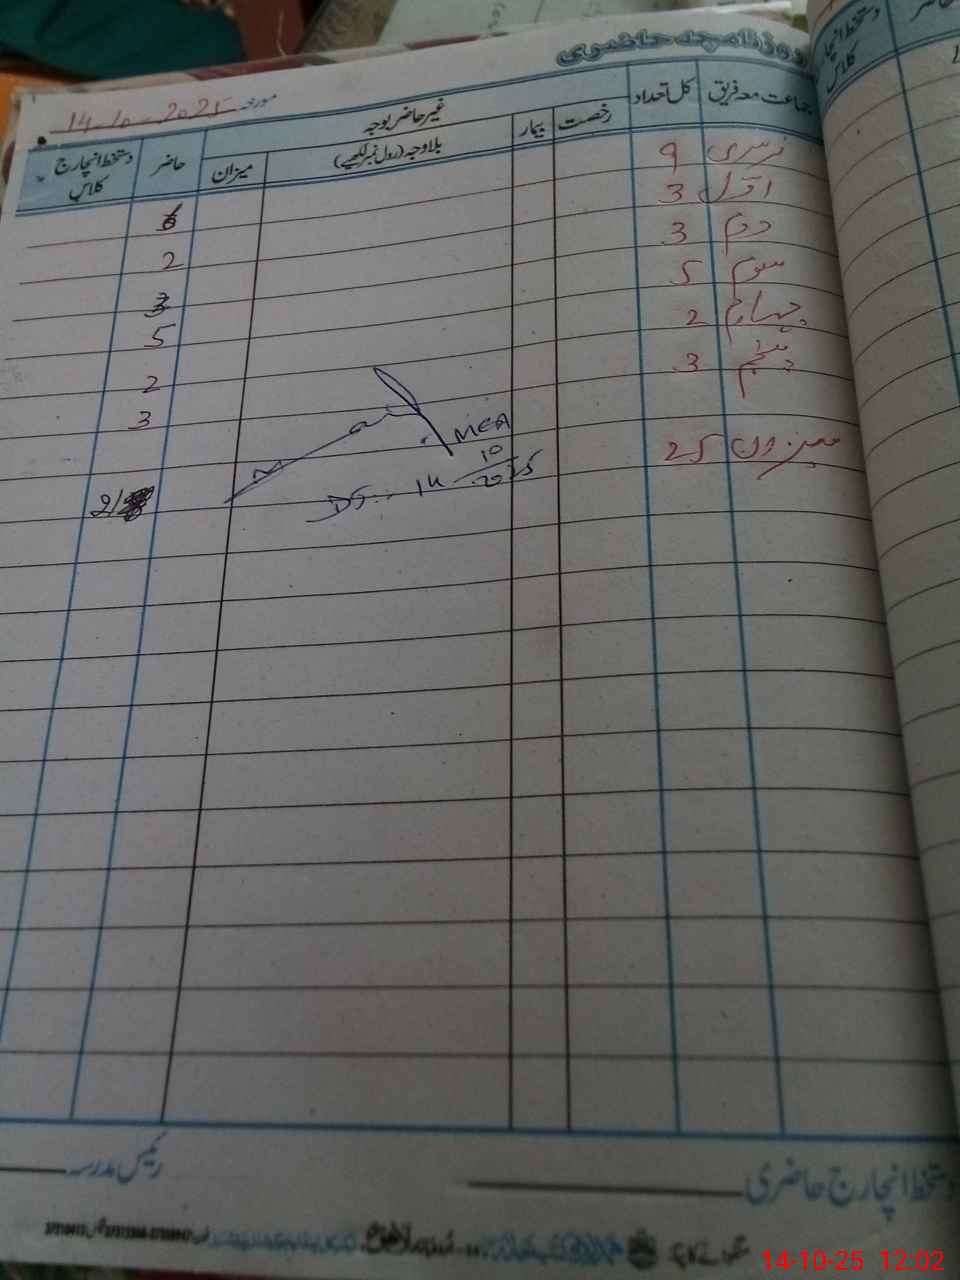 روزنامچہ حاضری
مورخہ 14-10-2025
جماعت معہ فریق کل تعداد رخصت بیمار غیر حاضر بوجہ بلاوجہ (رول نمبر لکھیے) میزان حاضر دستخط انچارج کلاس
نرسری 9 6
اول 3 2
دوم 3 3
سوم 5 5
چہارم 2 2
پنجم 3 3
میزان 25 21
MEA
DT: 14/10/2025
دستخط انچارج حاضری رئیس مدرسہ
14-10-25 12:02
دستخط انچارج کلاس
حاضر